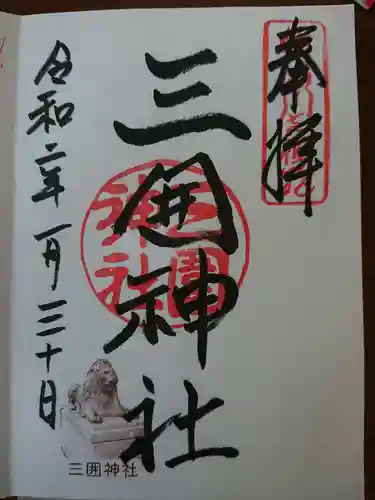 奉拝
三囲神社
令和二年一月三十日
三囲神社